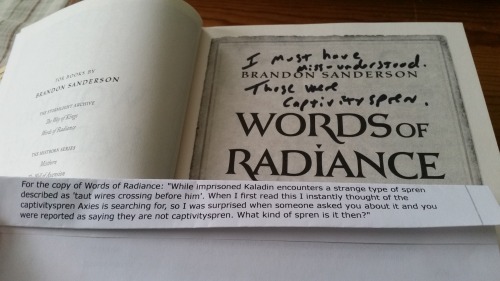 TOR BOOKS BY
BRANDON SANDERSON
THE STORMLIGHT ARCHIVE
The Way of Kings
Words of Radiance
THE MISTBORN SERIES
Mistborn
I must have
miss-understood.
BRANDON SANDERSON
Those were
Captivityspren.
WORDS OF
RADIANCE
For the copy of Words of Radiance: "While imprisoned Kaladin encounters a strange type of spren
described as 'taut wires crossing before him'. When I first read this I instantly thought of the
captivityspren Axies is searching for, so I was surprised when someone asked you about it and you
were reported as saying they are not captivityspren. What kind of spren is it then?"